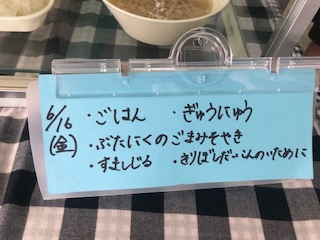 6/16 ・ごはん ・ぎゅうにゅう
(金) ・ぶたにくのごまみそやき
・すましじる ・きりぼしだいこんのいために